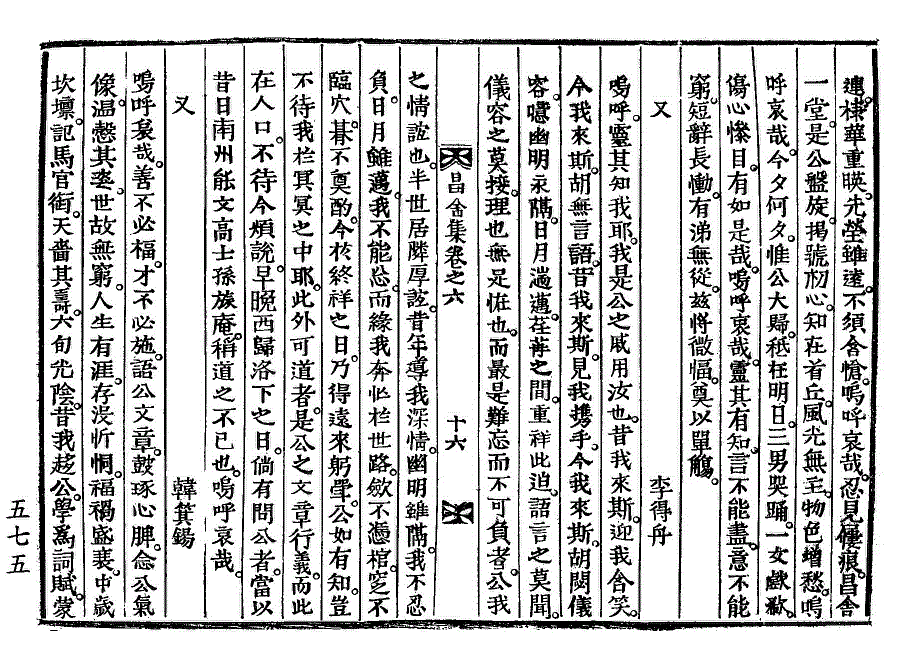 連棣華重暎。先塋雖遠。不須含愴。嗚呼哀哉。忍見僾痕昌舍
一堂。是公盤旋。揭號初心。知在首丘。風光無主。物色增愁。嗚
呼哀哉。今夕何夕。惟公大歸。秪在明日。三男哭踊。一女歔欷。
傷心慘目。有如是哉。嗚呼哀哉。靈其有知。言不能盡。意不能
窮。短辭長慟。有涕無從。玆將微愊。奠以單觴。
又 李得舟
嗚呼。靈其知我耶。我是公之戚用汝也。昔我來斯。迎我含笑。
今我來斯。胡無言語。昔我來斯。見我携手。今我來斯。胡閟儀
容。噫。幽明永隔。日月遄邁。荏苒之間。重祥此迫。語言之莫聞。
儀容之莫接。理也。無足怪也。而最是難忘而不可負者。公我
昌舍集卷之六 十六
之情誼也。半世居隣厚誼。昔年導我深情。幽明雖隔。我不忍
負。日月雖邁。我不能忘。而緣我奔忙於世路。斂不憑棺。窆不
臨穴。朞不奠酌。今於終祥之日。乃得遠來躬哭。公如有知。豈
不待我於冥冥之中耶。此外可道者。是公之文章行義。而此
在人口。不待今煩說。早晩西歸洛下之日。倘有問公者。當以
昔日南州能文高士孫族庵。稱道之不已也。嗚呼哀哉。
又 韓箕錫
嗚呼哀哉。善不必福。才不必施。語公文章。鼓琢心脾。念公氣
像。温愨其姿。世故無窮。人生有涯。存沒忻恫。福禍盛衰。中歲
坎壈。記馬官衙。天嗇其壽。六旬光陰。昔我趍公。學爲詞賦。蒙
五七五